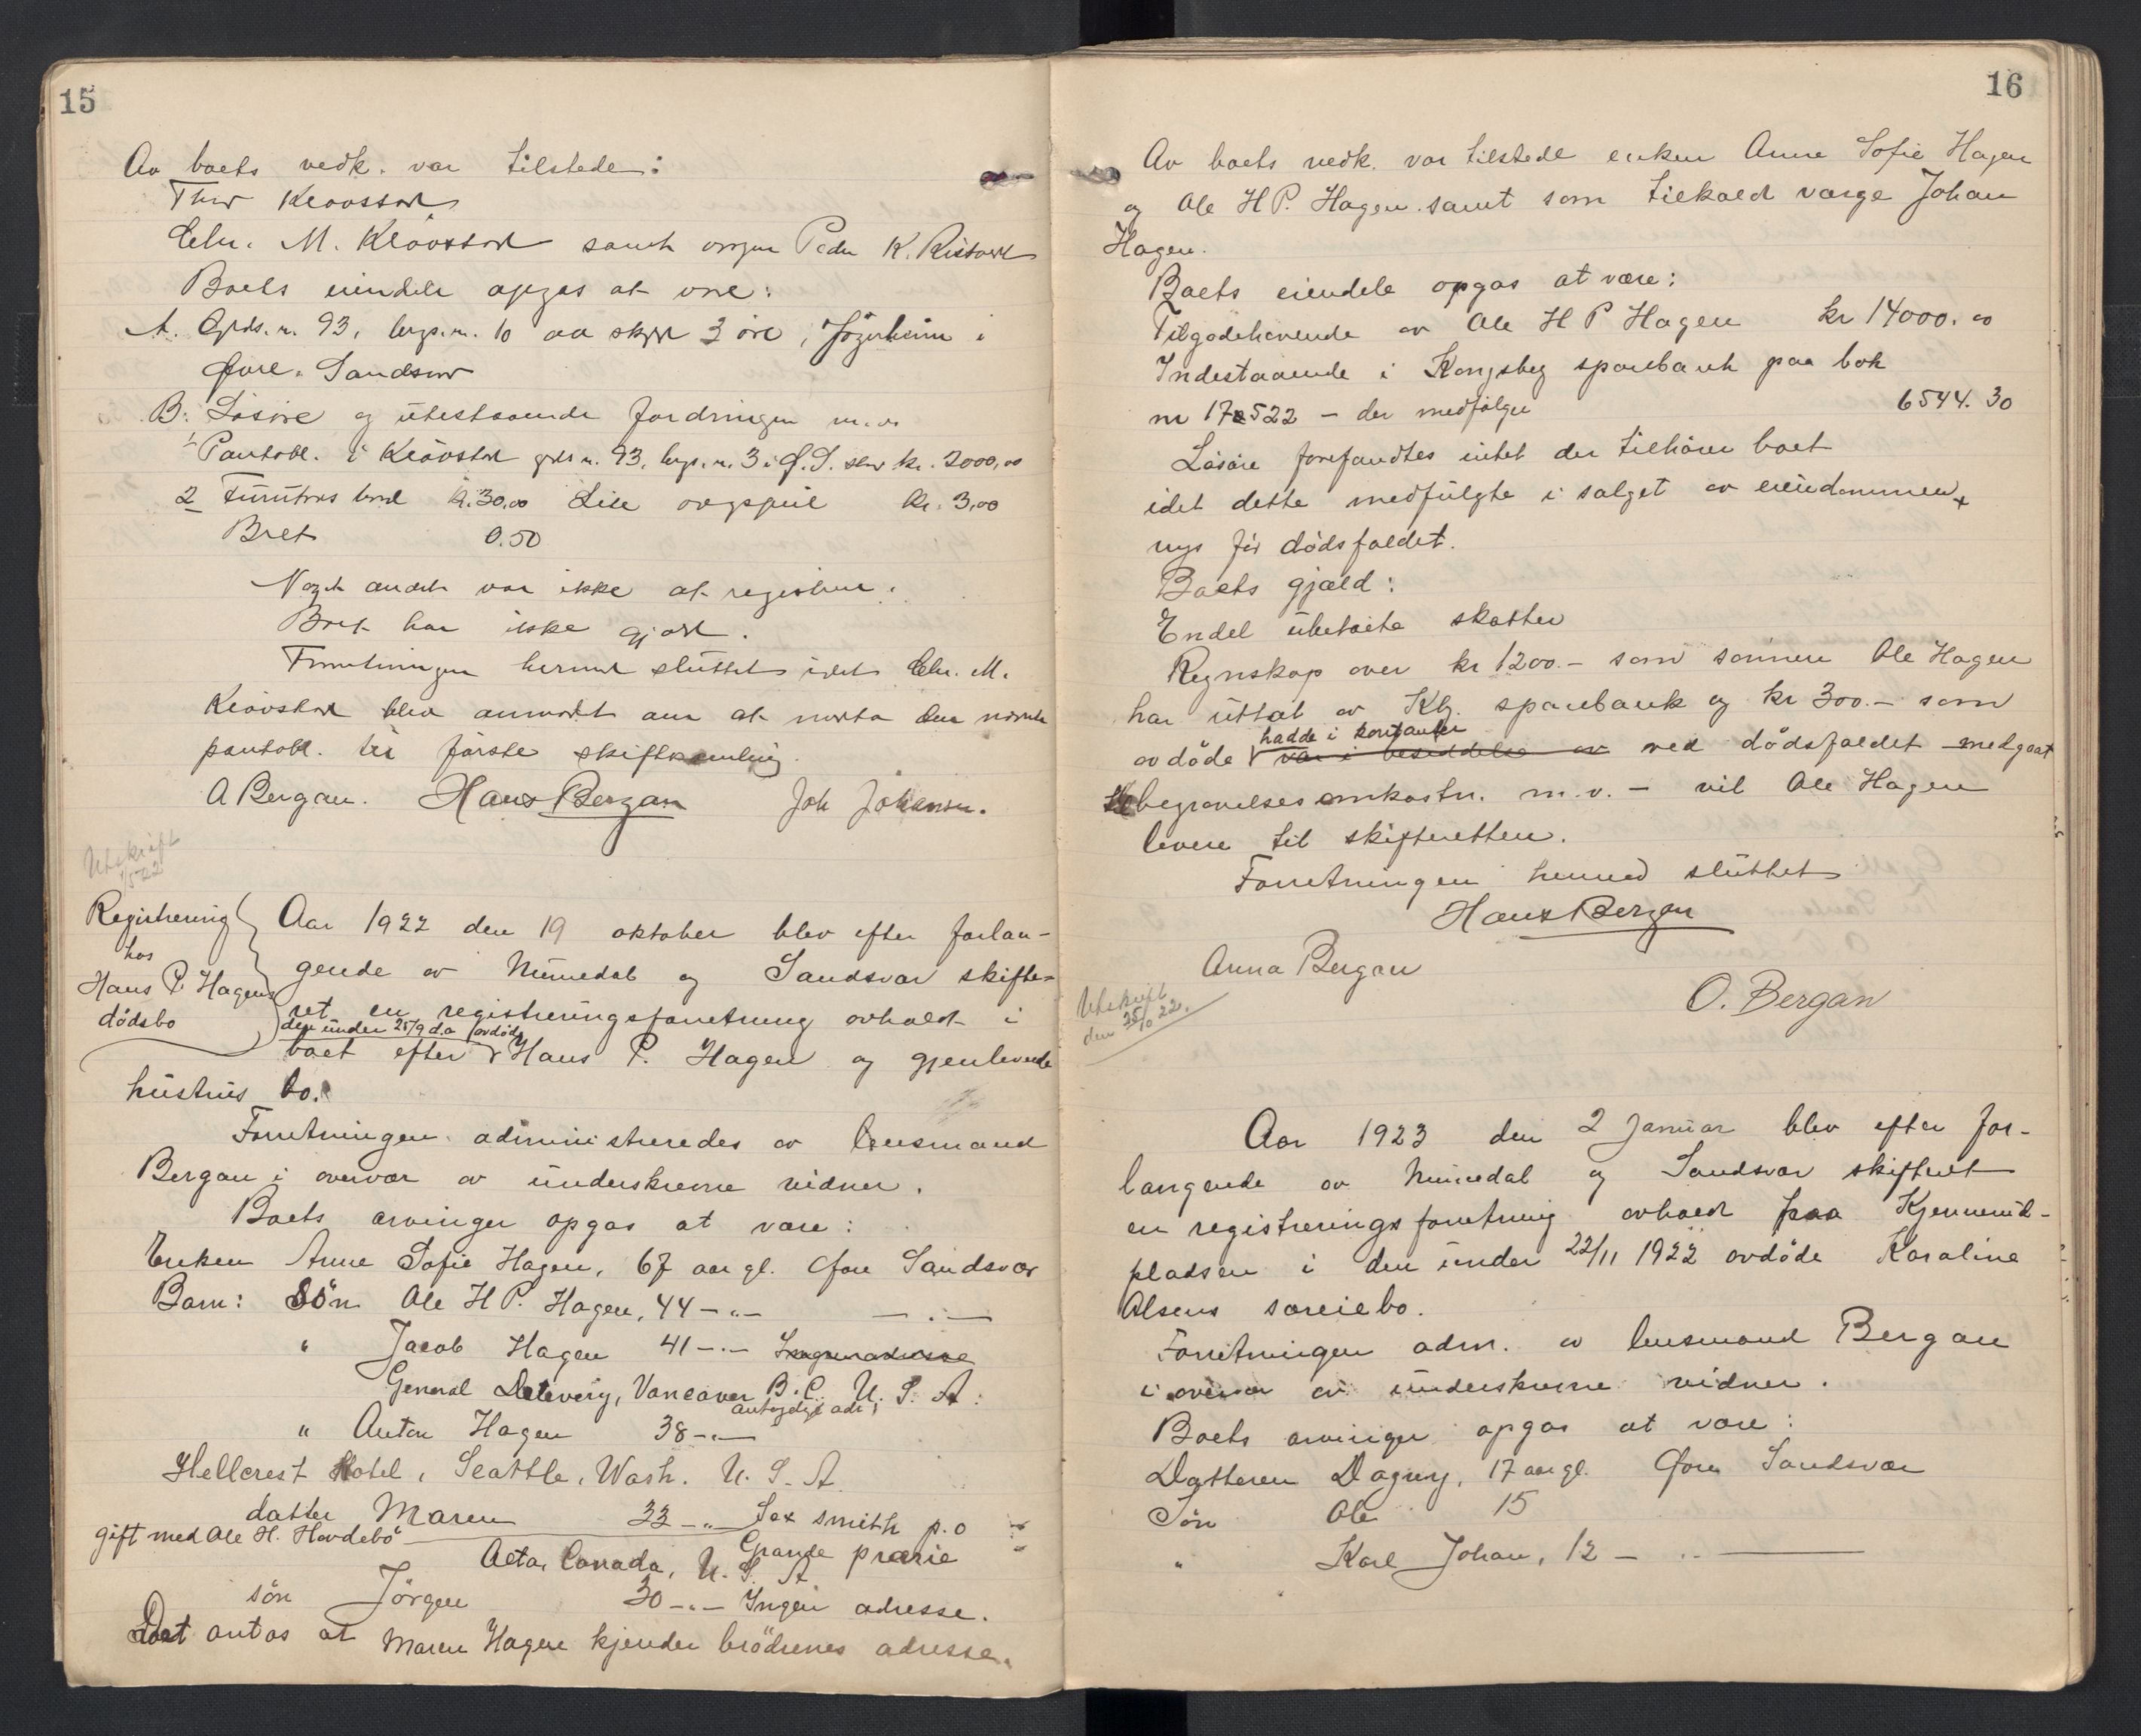 15
Av boets vedk. var tilstede:
Thor Kløvstad
Chr. M. Kløvstad samt Peder K. Ristvedt
Boets eiendele opgas at være:
A. Grds. n. 93, brgs. n. 10 av skyld 3 øre, i
Øvre Sandsvær
B. Løsøre og utestaaende fordringer m.v.
1/ Pantobl. i Kløvstad grds n. 93, brgs. n. 3 i Ø. S. kr. 2000,00
2 kr. 30,00 Lite kr. 3,00
Bret 0.50
Noget andet var ikke at registrere.
Boet har ikke gjæld.
Forretningen hermed sluttet idet Chr. M.
Kløvstad blev anmodet om at den nævnte
pantobl. til første skiftesamling.
A Bergan. Hans Bergan Joh Johansen.
Utskrift
1/5 22
Registrering
hos
Hans P. Hagens
dødsbo
Aar 1922 den 19 oktober blev efter forlan-
gende av Numedal og Sandsvær skifte-
ret en registreringsforretning avholdt i
den under 25/9 da avdøde
boet efter Hans P. Hagen og gjenlevende
hustrus bo.
Forretningen administreredes av lensmand
Bergan i overvær av underskrevne vidner.
Boets arvinger opgas at være:
Enken Anne Sofie Hagen, 67 aar gl. Øvre Sandsvær
Barn: Søn Ole H P. Hagen, 44 -"- -"-
" Jacob Hagen 41 -"-
General Delevery, Vancover B. C. U. S. A.
antagelig adr;
" Anton Hagen 38 -"-
Hellcrest Hotel, Seattle, Wash. U. S. A.
datter Maren 33 -"- Sexsmith p.o
gift med Ole H. Hovdebø Grande prærie
Alta, Canada, U. S. A
søn Jørgen 30 -"- Ingen adresse.
Det antas at Maren Hagen kjender brødrenes adresse.
16
Av boets vedk. var tilstede enken Anne Sofie Hagen
og Ole H P. Hagen samt som tilkaldt værge Johan
Hagen.
Boets eiendele opgas at være:
Tilgodehavende av Ole H P Hagen kr 14000.00
Indestaaende i Kongsberg sparebank paa bok
nr 17522 - der medfølger 6544.30
Løsøre forefandtes intet der tilhører boet
idet dette medfulgte i salget av eiendommen
nys før dødsfaldet.
Boets gjæld:
Endel ubetalte skatter
Regnskap over kr 1200.- som sønnen Ole Hagen
har uttat av Kbg. sparebank og kr 300.- som
hadde i kontanter
avdøde var i besiddelse av ved dødsfaldet medgaat
til begravelsesomkostn. m.v. - vil Ole Hagen
levere til skifteretten.
Forretningen hermed sluttet
Hans Bergan
Anna Bergan
O. Bergan
Utskrift
den 25/10 22.
Aar 1923 den 2 januar blev efter for-
langende av Numedal og Sandsvær skifteret
en registreringsforretning avholdt paa Kjennerud-
pladsen i den under 22/11 1922 avdøde Karoline
Olsens særeiebo.
Forretningen adm. av lensmand Bergan
i overvær av underskrevne vidner.
Boets arvinger opgas at være:
Datteren Dagny, 17 aar gl. Øvre Sandsvær
Søn Ole 15
" Karl Johan, 12 - " -